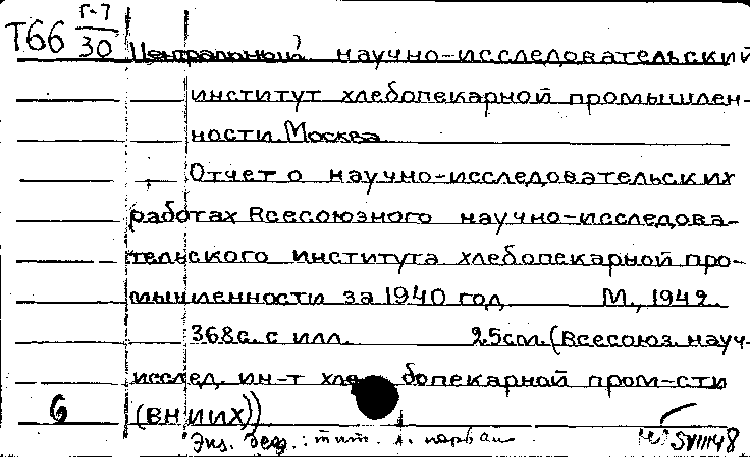 Т66 Г-7
30
Центральный научно-исследовательский
институт хлебопекарной промышлен-
ности. Москва
Отчет о научно-исследовательских
работах Всесоюзного научно-исследова-
тельского института хлебопекарной про-
мышленности за 1940 год М., 1942.
368с. с илл. 25см. (Всесоюз. науч-
исслед. ин-т хле бопекарной пром-сти
6 (ВНИИХ))
Экз. деф.: тит. л. порван SVIII48